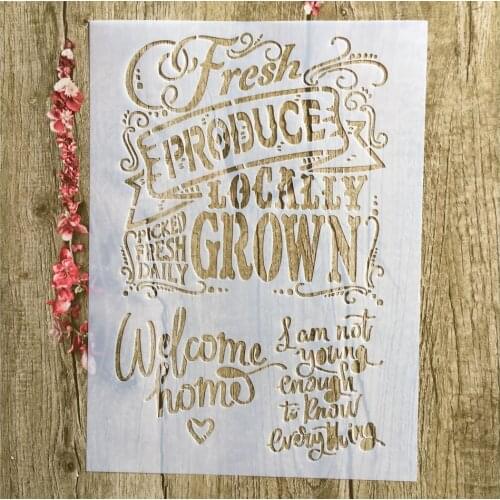 Fresh
PRODUCE
LOCALLY
PICKED
FRESH
DAILY
GROWN
Welcome
home
I am not
young
enough
to know
everything